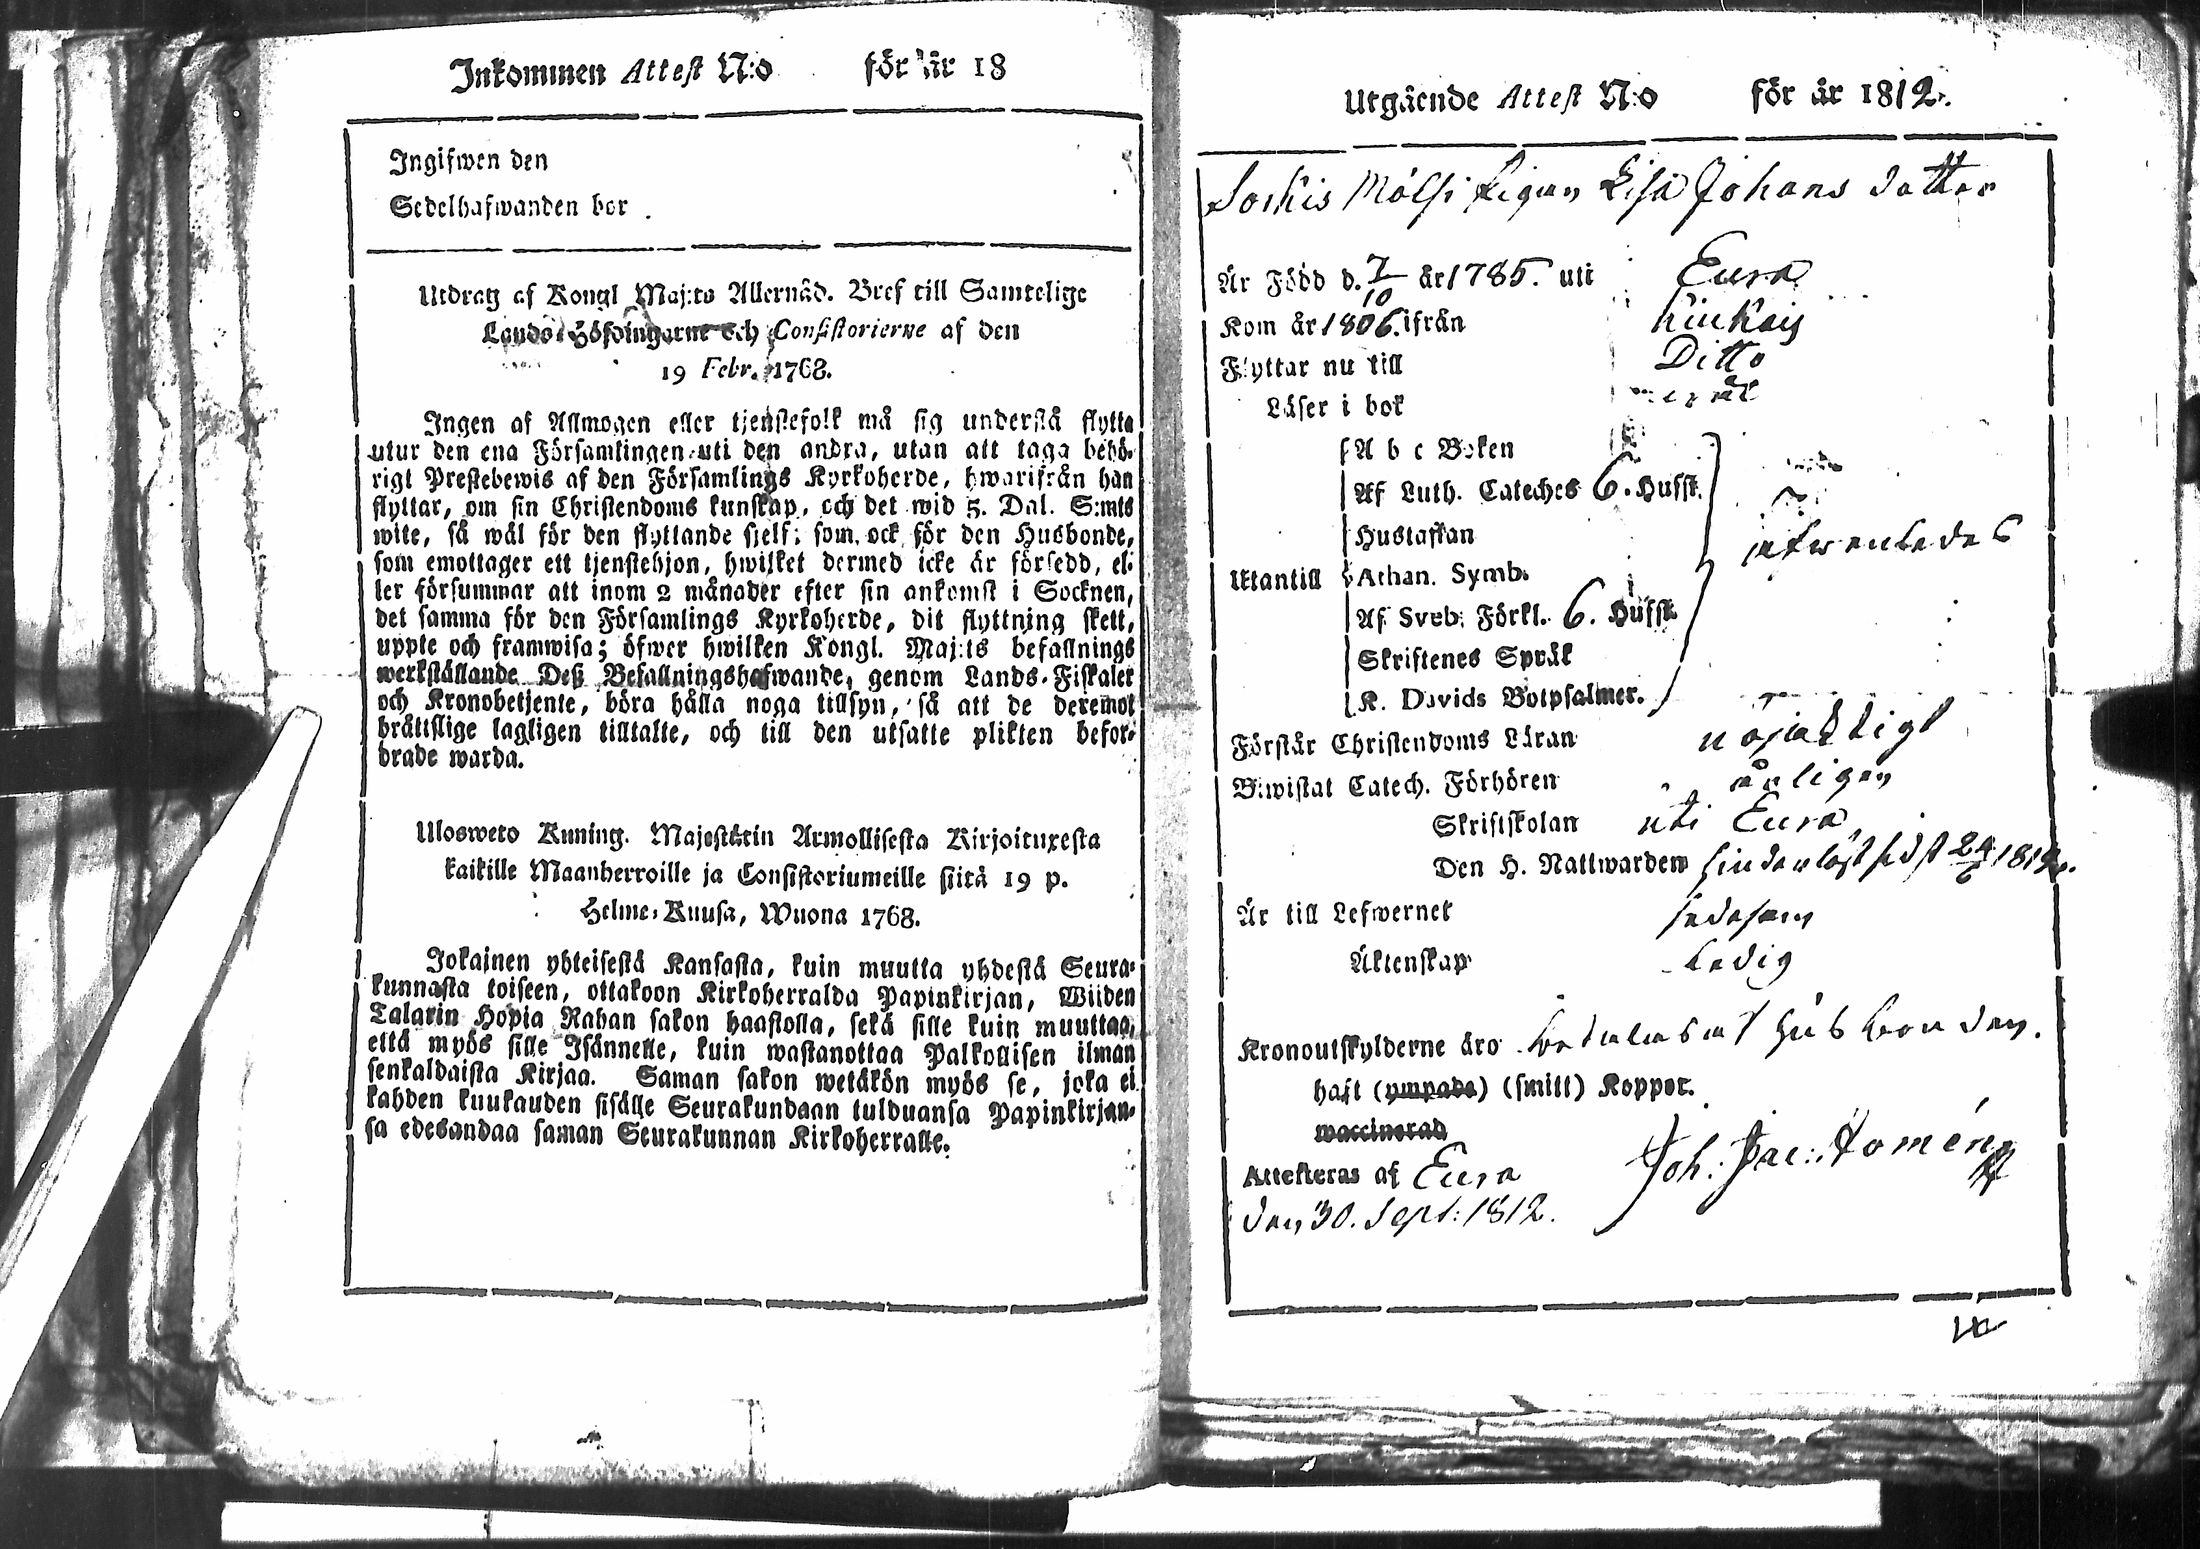 Inkommen Attest N:o för år 18
Ingifwen den
Sedelhafwanden bor
Utdrag af Kongl Maj:ts Allernåd. Bref till Samtelige
Lands-Höfdingarne och Consistorierne af den
19 Febr. 1768.
Ingen af Allmogen eller tjenstefolk må sig understå flytta
utur den ena Församlingen uti den andra, utan att taga behö-
rigt Prestebewis af den Församlings Kyrkoherde, hwarifrån han
flyttar, om sin Christendoms kunskap, och det wid 5. Dal. S:mts
wite, så wäl för den flyttande sjelf; som ock för den Husbonde,
som emottager ett tjenstehjon, hwilket dermed icke är försedd, el-
ler försummar att inom 2 månader efter sin ankomst i Socknen,
det samma för den Församlings Kyrkoherde, dit flyttning skett,
uppte och framwisa; öfwer hwilken Kongl. Maj:ts befallnings
werkställande Deß Befallningshafwande, genom Lands-Fiskaler
och Kronobetjente, böra hålla noga tillsyn, så att de deremot
bråttslige lagligen tilltalte, och till den utsatte plikten befor-
drade warda.
Ulosweto Kuning. Majestätin Armollisesta Kirjoituxesta
kaikille Maanherroille ja Consistoriumeille siitä 19 p.
Helme-Kuusa, Wuona 1768.
Jokainen yhteisestä Kansasta, kuin muutta yhdestä Seura-
kunnasta toiseen, ottakoon Kirkoherralda Papinkirjan, Wiiden
Talarin Hopia Rahan sakon haastolla, sekä sille kuin muuttaa,
että myös sille Isännelle, kuin wastanottaa Palkollisen ilman
senkaldaista Kirjaa. Saman sakon wetäkön myös se, joka ei
kahden kuukauden sisälle Seurakundaan tulduansa Papinkirjan-
sa edesandaa saman Seurakunnan Kirkoherralle.
Utgående Attest N:o för år 1812.
Sorkis Mölsi Pigan Lisa Johans dotter
Är Född d. 7/10 år 1785. uti Eura
Kom år 1806. ifrån Kiukais
Flyttar nu till Ditto
Läser i bok
A b c Boken
Af Luth. Cateches 6. Hufst.
Hustaflan
Utantill Athan. Symb.
Af Sveb. Förkl. 6. Hufst.
Skriftenes Språk
K. Davids Botpsalmer.
äfwenledes
Förstår Christendoms Läran nöjaktigt
Biwistat Catech. Förhören årligen
Skriftskolan uti Eura
Den H. Nattwarden hinderlöst sidst 24/6 1812.
Är till Lefwernet sedesam
Äktenskap ledig
Kronoutskylderne äro betalas af husbonden.
haft (ympade) (smitt) Koppor.
waccinerad
Attesteras af Eura Joh: Jac: Homén
den 30. Sept: 1812.